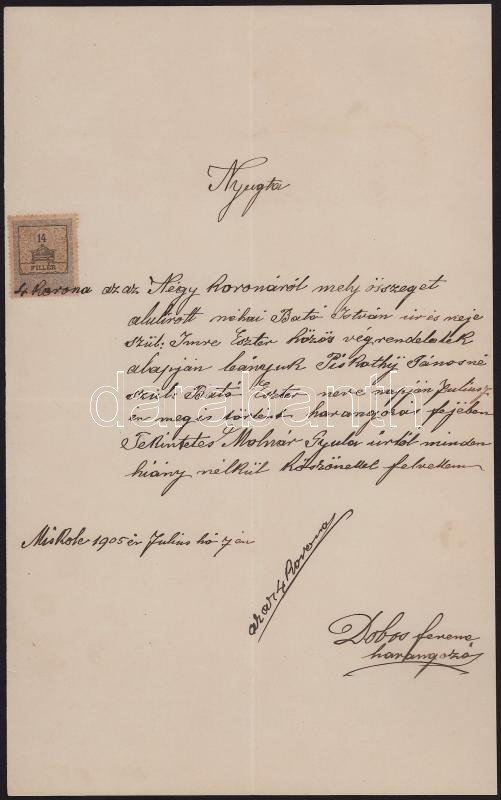 Nyugta
14
FILLÉR
4 korona az az Négy koronáról mely összeget
alulirott néhai Bató István úr és neje
szül: Imre Eszter közös végrendeletek
alapján leányuk Piskathy Jánosné
szül: Bató Eszter neve napján Julius 7
én meg is tartott harangozás fejében
Tekintetes Molnár Gyula úrtól minden
hiány nélkül köszönettel felvettem
Miskolc 1905 év Julius hó 7 én
az az 4 korona
Dobos ferenc
harangozó
darabanth